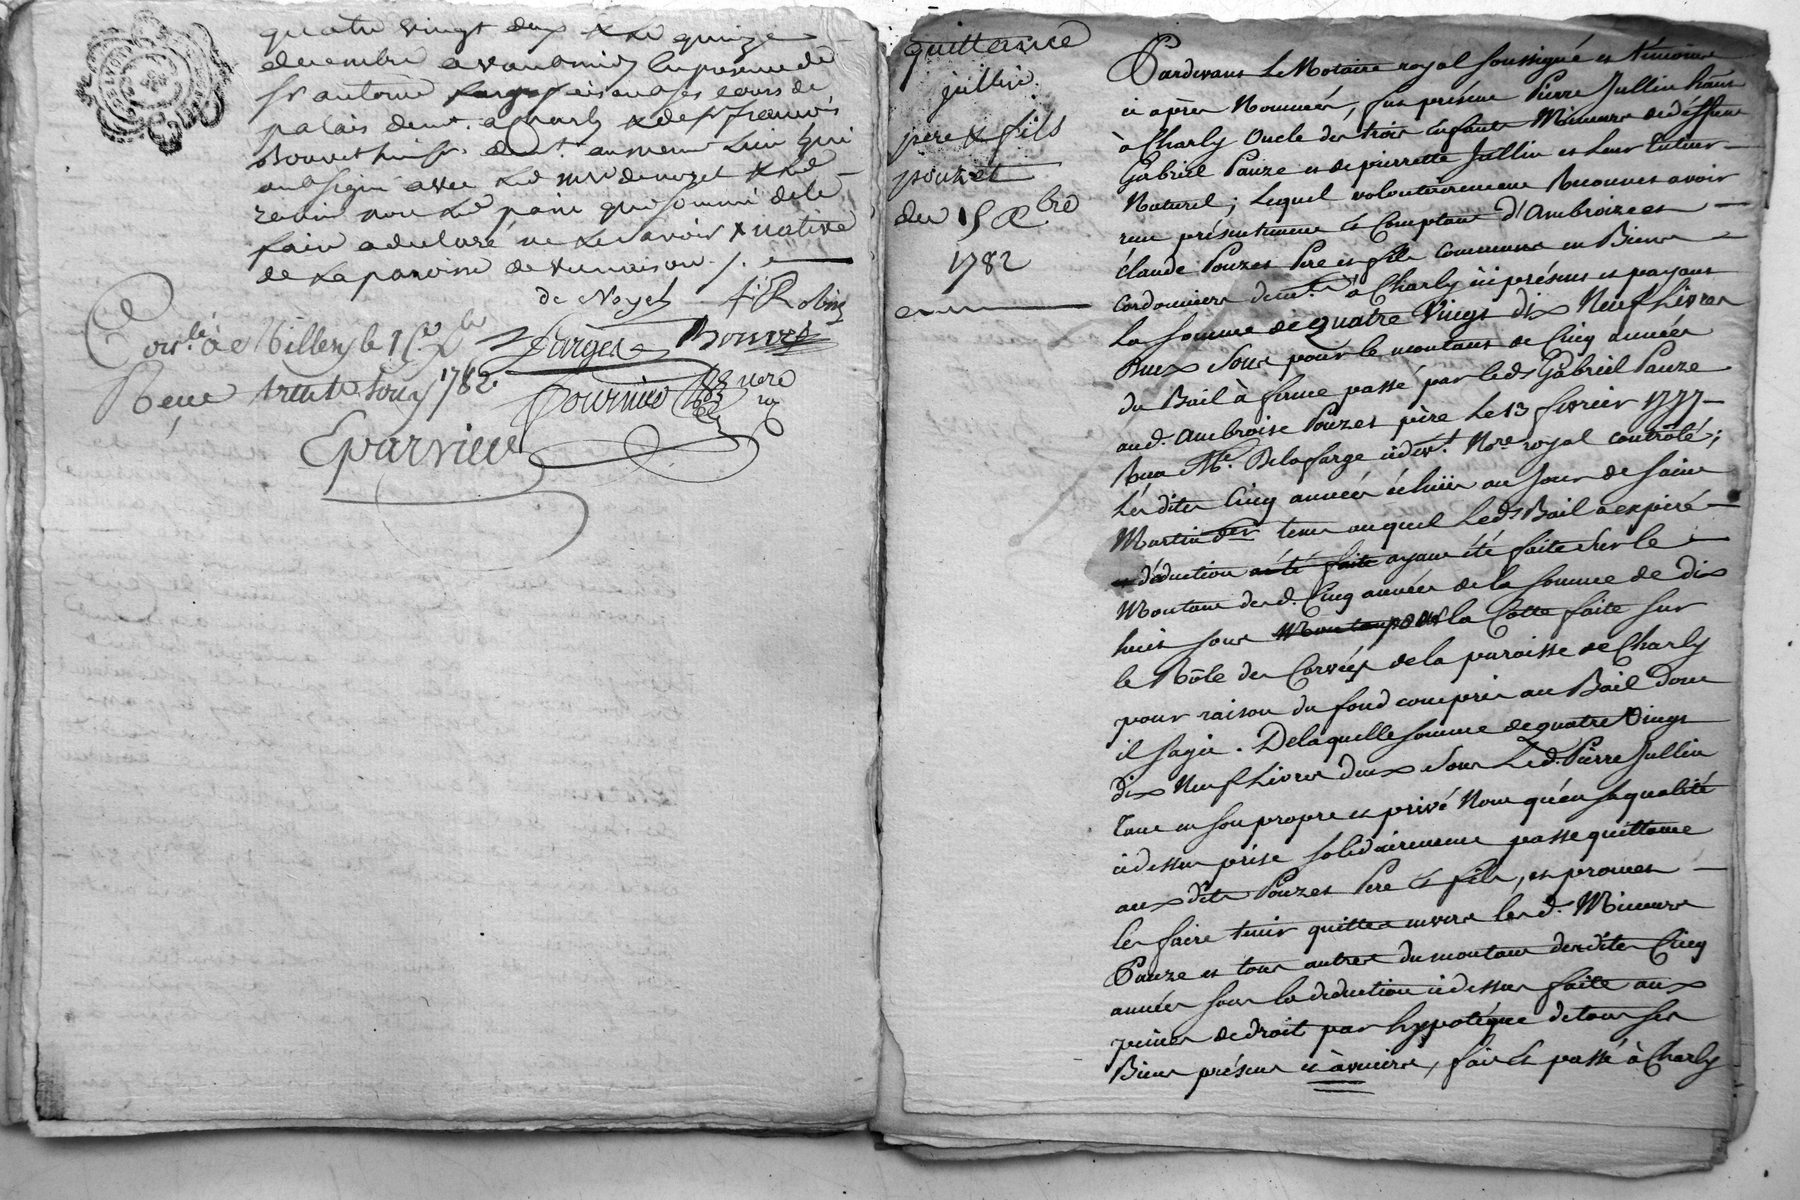 quatre vingt deux & le quinze
decembre avant midy en presence de
sr antoine farges bourgeois de
palais demt. a Charly & de sr françois
Bouvet demt. au meme lieu qui
ont signé avec led sr de noyel & led
robin non led pain que sommé de le
faire a declaré ne le savoir & native
de la paroisse de vernaison ./.
de Noyel
Robin
farges
Bouvet
Con.lé à Millery le 15 Xbre
1782
Reçu trente sous
Fournier
Eparvier
quittance
jullin
pere & fils
pouzet
du 15 Xbre
1782
Pardevant Le Notaire royal soussigné et témoins
ci après Nommés, fut présent Pierre Jullin
à Charly Oncle des trois enfants Mineurs de déffunt
Gabriel Pauze et de pierrette Jullin et Leur tuteur
Naturel ; Lequel volontairement Reconnet avoir
reçu présentement et Comptant d'Ambroise et
claude Pouzet Pere et fils communs en Biens
cordonniers demt. à Charly ici présens et payans
La somme de quatre Vingt dix Neuf Livres
Deux Sous pour le montant de Cinq années
du Bail à ferme passé par led Gabriel Pauze
aud. Ambroise Pouzet père Le 13 fevrier 1777
Reçu Me. Delafarge cidevt. Nre royal contrôlé ;
Lesdites Cinq années échües au Jour de saint
Martin der tems auquel Leds Bail a expiré
déduction a été faite ayant été faite sur le
Montant desd. Cinq années de la somme de dix
huit sous Montant pour la Cotte faite sur
le Rôle des Corvées de la paroisse de Charly
pour raison du fond compris au Bail dont
il s'agit. De laquelle somme de quatre Vingt
dix Neuf Livres deux Sous Led. Pierre Jullin
tant en son propre et privé Nom qu'en sa qualité
cidessus prise solidairement passe quittance
aux dits Pouzet Pere et fils, et promet
les faire tenir quittes envers lesd. Mineurs
Pauze et tous autres du montant desdites Cinq
années sous la déduction cidessus faite aux
peines de droit par hypotéque de tous ses
Biens présens et à venir, fait et passé à Charly